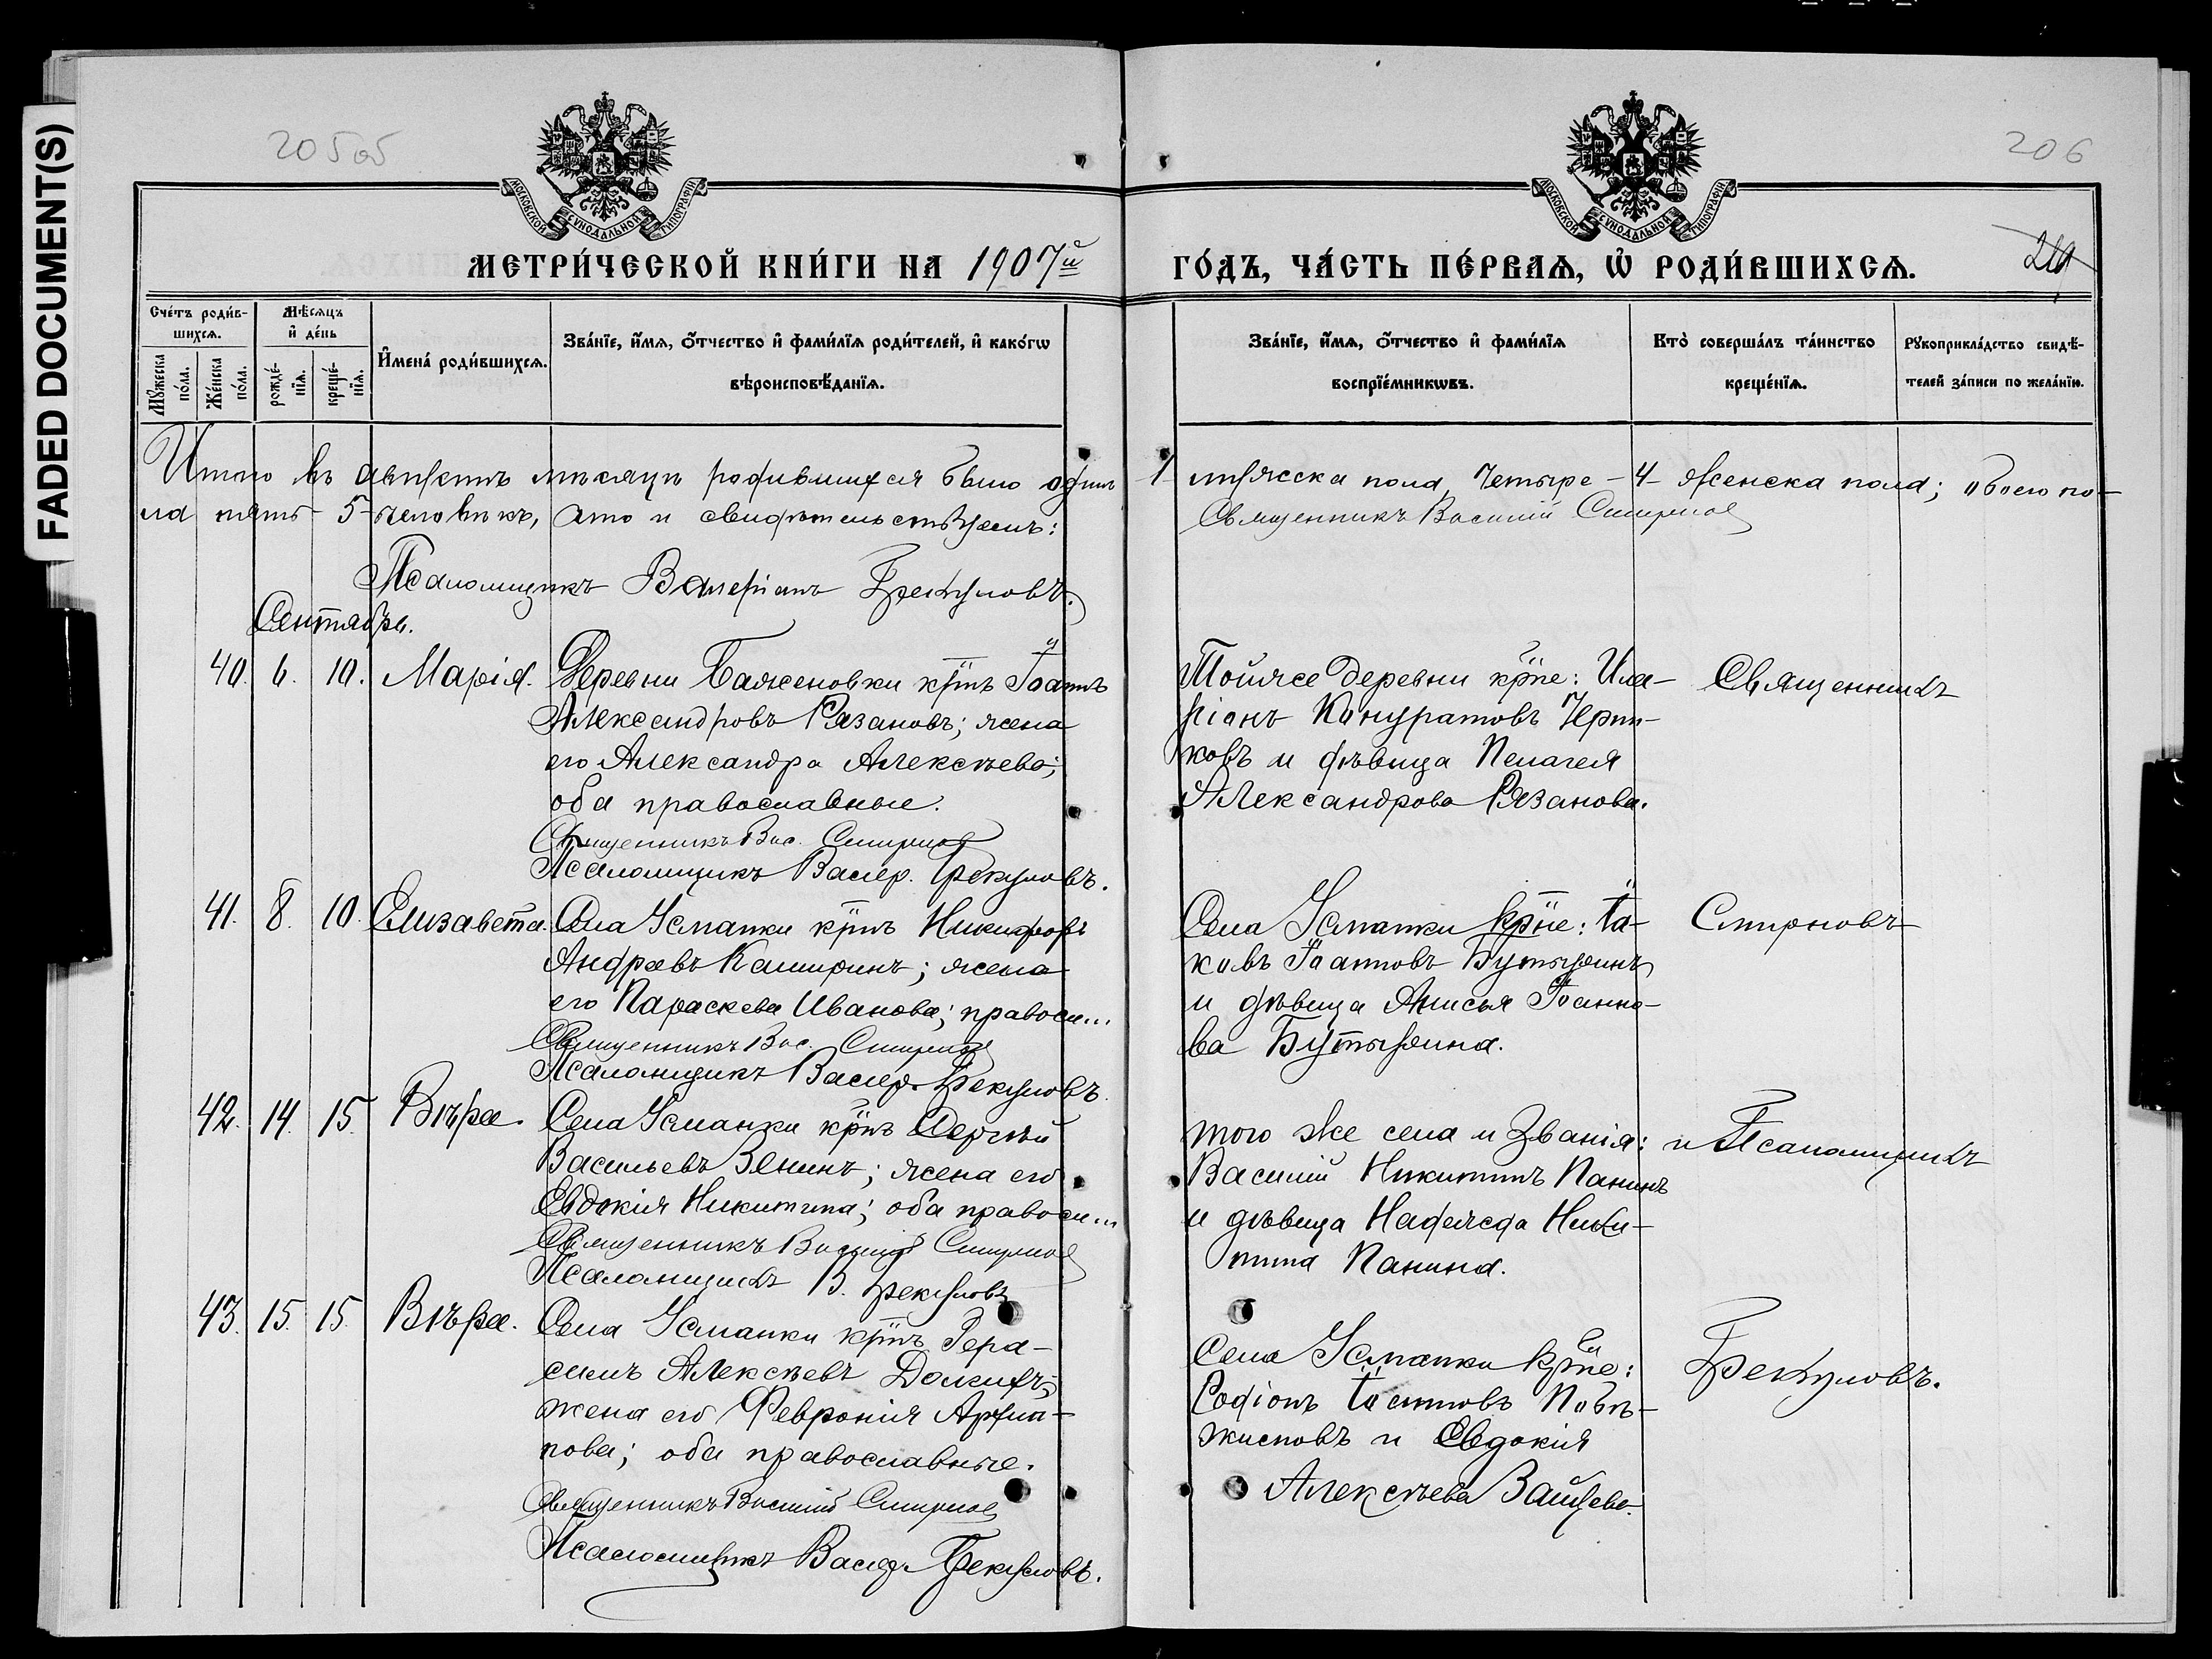 FADED DOCUMENT(S)
205об
206
МОСКОВСКОЙ СѴНОДАЛЬНОЙ ТИПОГРАФІИ
МОСКОВСКОЙ СѴНОДАЛЬНОЙ ТИПОГРАФІИ
МЕТРИ́ЧЕСКОЙ КНИ́ГИ НА 1907й
ГО́ДЪ, ЧА́СТЬ ПЕ́РВАѦ, Ѽ РОДИ́ВШИХСѦ.
Сче́тъ роди́в-
шихсѧ.
Мꙋ́жеска по́ла.
Же́нска по́ла.
Мѣ́сѧцъ
и҆ де́нь
рожде́-
нїѧ.
креще́-
нїѧ.
И҆мена̀ роди́вшихсѧ.
Зва́нїе, и҆́мѧ, ѻ҆́тчество и҆ фами́лїѧ роди́телей, и҆ како́гѡ
вѣроисповѣ́данїѧ.
Зва́нїе, и҆́мѧ, ѻ҆́тчество и҆ фами́лїѧ
воспрїе́мникѡвъ.
Кто̀ соверша́лъ та́инство
креще́нїѧ.
Рꙋкоприкла́дство свидѣ́-
телей за́писи по жела́нїю.
Итого въ августѣ мѣсяцѣ родившихся было одинъ 1 мужеска пола, четыре - 4 - женска пола; обоего по-
ла пять - 5 - человѣкъ, что и свидѣтельствуемъ:
Священникъ Василій Смирнов
Псаломщикъ Валеріанъ Грекуловъ.
Сентябрь.
40. 6. 10. Марія.
Деревни Баженовки крнъ Іоаннъ
Александровъ Рязановъ; жена
его Александра Алексѣева;
оба православные.
Священникъ Вас. Смирнов
Псаломщикъ Валер. Грекуловъ.
Тойже деревни крне: Ила-
ріанъ Кануратовъ Черт-
ковъ и дѣвица Пелагея
Александрова Рязанова.
Священникъ
41. 8. 10. Елизавета.
Села Усманки крнъ Никифоръ
Андреевъ Каширинъ; жена
его Параскева Иванова; правосл...
Священникъ Вас. Смирнов
Псаломщикъ Валер. Грекуловъ.
Села Усманки крне: Іа-
ковъ Іоанновъ Бутыринъ
и дѣвица Анисья Іоанно-
ва Бутырина.
Смирновъ
42. 14. 15. Вѣра.
Села Усманки крнъ Сергѣй
Васильевъ Зенинъ; жена его
Евдокія Никитина; оба правосл...
Священникъ Василій Смирнов
Псаломщикъ В. Грекуловъ
того же села и званія:
Василій Никитинъ Панинъ
и дѣвица Надежда Ники-
тина Панина.
и Псаломщикъ
43. 15. 15. Вѣра.
Села Усманки крнъ Гера-
симъ Алексѣевъ Долгихъ;
жена его Февронія
оба православные.
Священникъ Василій Смирнов
Псаломщикъ Валер. Грекуловъ.
Села Усманки крне:
Родіонъ
и Евдокія
Алексѣева Зайцева.
Грекуловъ.